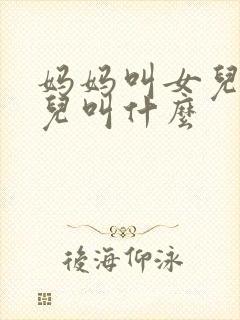 妈妈叫女兒
兒叫什麼
後海仰泳